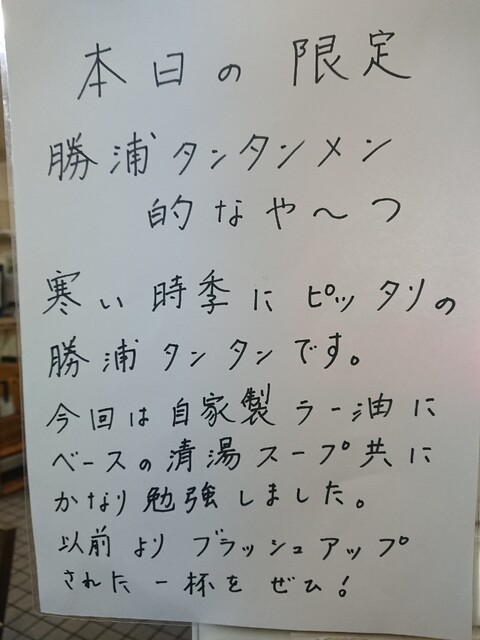 本日の限定
勝浦タンタンメン
的なや〜つ
寒い時季にピッタリの
勝浦タンタンです。
今回は自家製ラー油に
ベースの清湯スープ共に
かなり勉強しました。
以前よりブラッシュアップ
された一杯をぜひ!